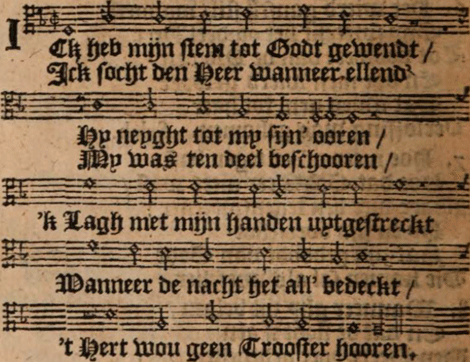 ICk heb mijn stem tot Godt gewendt /
Ick socht den Heer wanneer ellend'
Hy neyght tot my sijn' ooren /
My was ten deel beschooren /
'k Lagh met mijn handen uytgestreckt
Wanneer de nacht het all' bedeckt /
't Hert wou geen Trooster hooren.